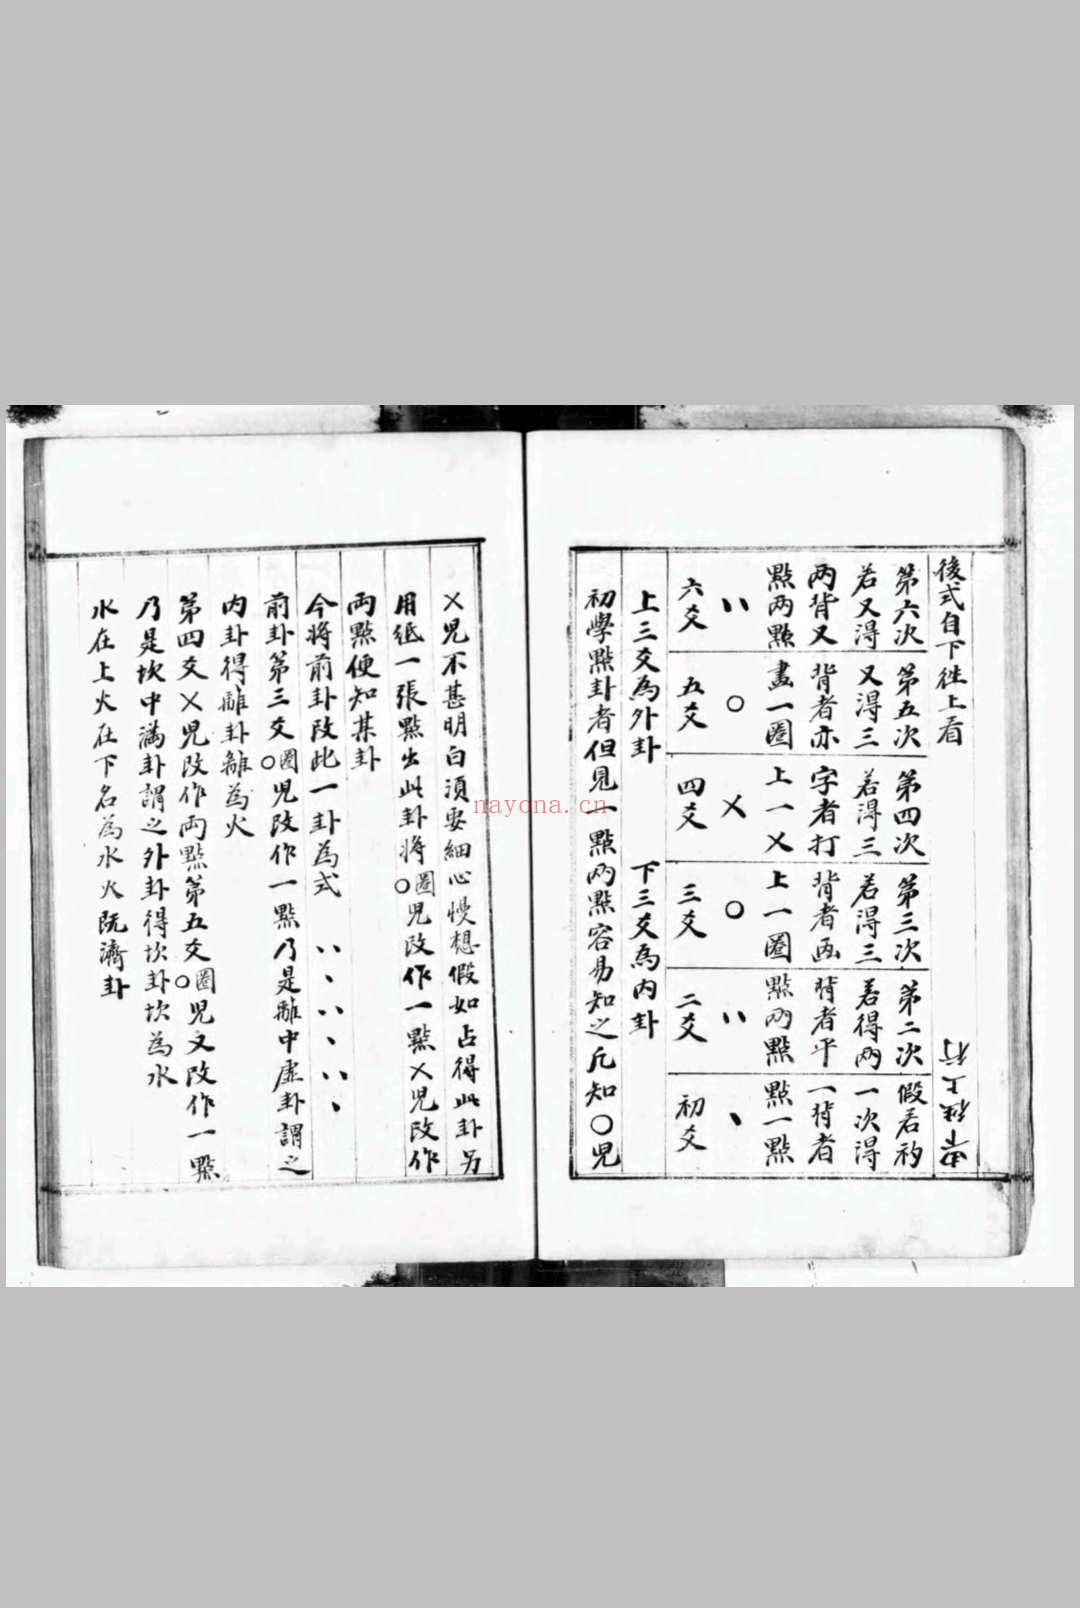 後式自下徃上看
第六次
若又得
兩背又
點兩點
六爻
第五次
又得三
背者亦
畫一圈
〇
五爻
第四次
若得三
字者打
上一乂
乂
四爻
第三次
若得三
背者画
上一圈
〇
三爻
第二次
若得兩
背者平
點兩點
二爻
假若初
一次得
一背者
點一點
、
初爻
上三爻為外卦 下三爻為内卦
初學點卦者但見一點兩點容易知之凢知〇兒
乂兒不甚明白須要細心慢想假如占得此卦另
用纸一張點出此卦將〇圈兒改作一點乂兒改作
兩點便知某卦
今將前卦改此一卦為式
前卦第三爻〇圈兒改作一點乃是離中虛卦謂之
内卦得離卦離為火
第四爻乂兒改作両點第五爻〇圈兒又改作一點
乃是坎中滿卦謂之外卦得坎卦坎為水
水在上火在下名為水火既濟卦
nayona.cn